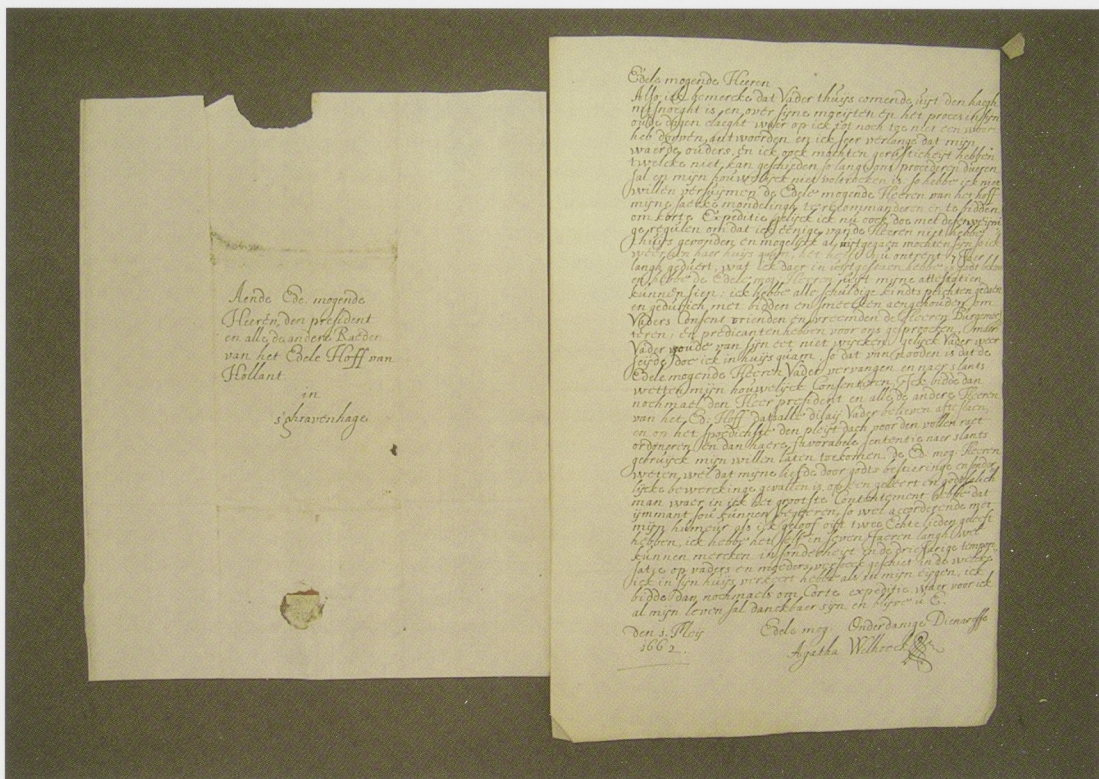 Aende Ede. mogende
Heeren, den president
en alle de andere Raeden
van het Edele Hoff van
Hollant
in
s'Gravenhage
Edele mogende Heeren
Also ick bemercke dat Vader thuijs comende uijt den haegh
misnoeght is en over sijne en het proces in sijn
oude dagen claeght waer op ick tot noch toe niet een woort
heb durven antwoorden en ick seer verlange dat mijn
waerde ouders en ick oock mochten gerusticheijt hebben
t'welcke niet kan geschieden so lang ons procederen duren
sal en mijn houwelijck niet voltrocken is so hebbe ick niet
willen versuijmen de Edele mogende Heeren van het hoff
mijne saecke mondelingh te recommanderen en te bidden
om korte Expeditie gelijck ick nu oock doe met dese weijni
ge regulen om dat ick eenige vande Heeren niet hebbe
thuijs gevonden en mogelijck al uijtgegaen mochten sijn so ick
weder in haer huijs quam, het heeft nu ontrent 7 Jaer
langh geduert, wat ick daer in uijtgestaen hebbe is godt bekent
en hebbe de Edele mog Heeren uijt mijne attestatien
kunnen sien: ick hebbe alle schuldige kindts plichten gedaen
en geduerich met bidden en smeecken aengehouden om
Vaders Consent vrienden en vreemden de Heeren Burgemee
steren en predicanten hebben voor ons gesproocken, Maer
Vader woude van sijn eet niet wijcken gelijck Vader weer
seijde doe ick in huijs quam. so dat van nooden is dat de
Edele mogende Heeren Vader vervangen en naer s'lants
wetten mijn houwelijck Consenteren. Ick bidde dan
nochmael den Heer president en alle de andere Heeren
van het Ed. Hoff dat alle dilaij Vader believen afte slaen,
en op het spoedichste den pleijt dach voor den vollen raet
ordoneren en dan haere favorabele sententie naer slants
gebruijck mijn willen laten toekomen. De Ed. mog. Heeren
weten wel dat mijne liefde door godts bestieringe en
lijcke bewerckinge gevallen is op een geleert en godtsalich
man waer in ick het grootste Contentement hebbe dat
ijmant sou kunnen begeeren, so wel accorderende met
mijn humeur als ick geloof oijt twee Echte lieden gehadt
hebben, ick hebbe het selve in seven Jaeren langh wel
kunnen mercken insonderheijt in de driejarige
satie op vaders en moeders versoeck geschiet in de welcke
ick in sijn huijs verkeert hebbe als in mijn eijgen, ick
bidde dan nochmaels om Corte expeditie waer voor ick
al mijn leven sal danckbaer sijn en blijve u E.
Edele mog. Onderdanige Dienaresse
den 1. Meij
1662.
Agatha Welhoeck